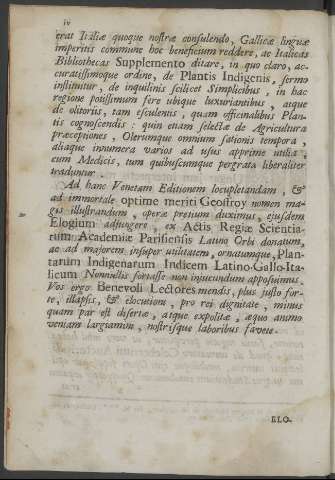 iv
erat Italiæ quoque nostræ consulendo, Gallicæ linguæ
imperitis commune hoc beneficium reddere, ac Italicas
Bibliothecas Supplemento ditare, in quo claro, ac-
curatissimoque ordine, de Plantis Indigenis, sermo
instituitur, de inquilinis scilicet Simplicibus, in hac
regione potissimum fere ubique luxuriantibus, atque
de olitoriis, tam esculentis, quam officinalibus Plan-
tis cognoscendis: quin etiam selectæ de Agricultura
præceptiones, Olerumque omnium sationis tempora,
aliaque innumera varios ad usus apprime utilia,
cum Medicis, tum quibuscumque pergrata liberaliter
traduntur.
Ad hanc Venetam Editionem locupletandam, &
ad immortale optime meriti Geoffroy nomen ma-
gis illustrandum, operæ pretium duximus, ejusdem
Elogium adjungere, ex Actis Regiæ Scientia-
rum Academiæ Parisiensis Latino Orbi donatum,
ac ad majorem insuper utilitatem, ornatumque, Plan-
tarum Indigenarum Indicem Latino-Gallo-Ita-
licum Nonnullis fortasse non injucundum apposuimus.
Vos ergo Benevoli Lectores mendis, plus justo for-
te, illapsis, & elocutioni, pro rei dignitate, minus
quam par est disertæ, atque expolitæ, æquo animo
veniam largiamini, nostrisque laboribus favete.
ELO-